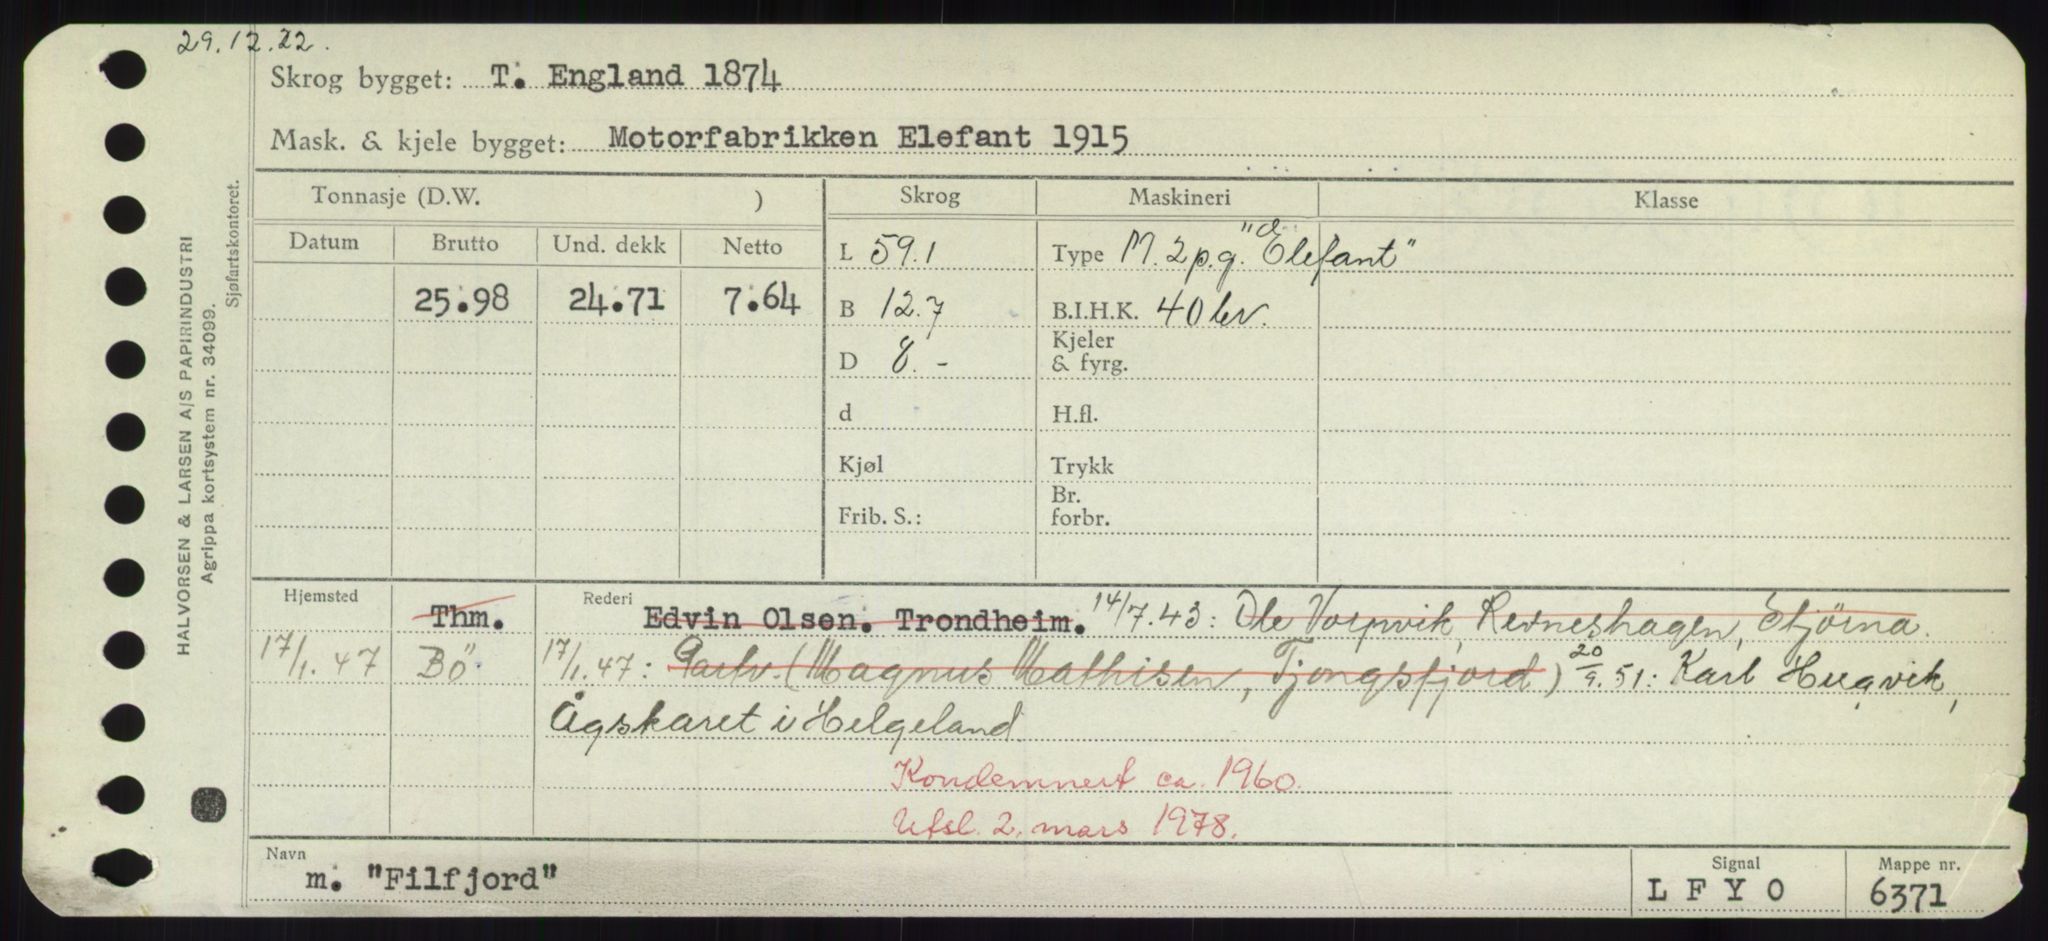 29.12.22.
Skrog bygget: T. England 1874
Mask. & kjele bygget: Motorfabrikken Elefant 1915
HALVORSEN & LARSEN A/S PAPIRINDUSTRI
Agrippa kortsystem nr. 34099.
Sjøfartskontoret.
Tonnasje (D.W. ) Skrog Maskineri Klasse
Datum Brutto Und. dekk Netto
L 59.1 Type M. 2 p.g. "Elefant"
25.98 24.71 7.64 B 12.7 B.I.H.K. 40 bv.
D 8. - Kjeler
& fyrg.
d H.fl.
Kjøl Trykk
Frib. S.: Br.
forbr.
Hjemsted Thm. Rederi Edvin Olsen. Trondheim. 14/7.43: Ole Vorpvik, Revneshagen, Stjørna.
17/1.47 Bö 17/1.47: Partv. (Magnus Mathisen, Tjongsfjord) 20/9.51: Karl Hugvik,
Ågskaret i Helgeland
Kondemnert ca. 1960.
Utsl. 2. mars 1978.
Navn m. "Filfjord"
Signal L F Y O
Mappe nr. 6371